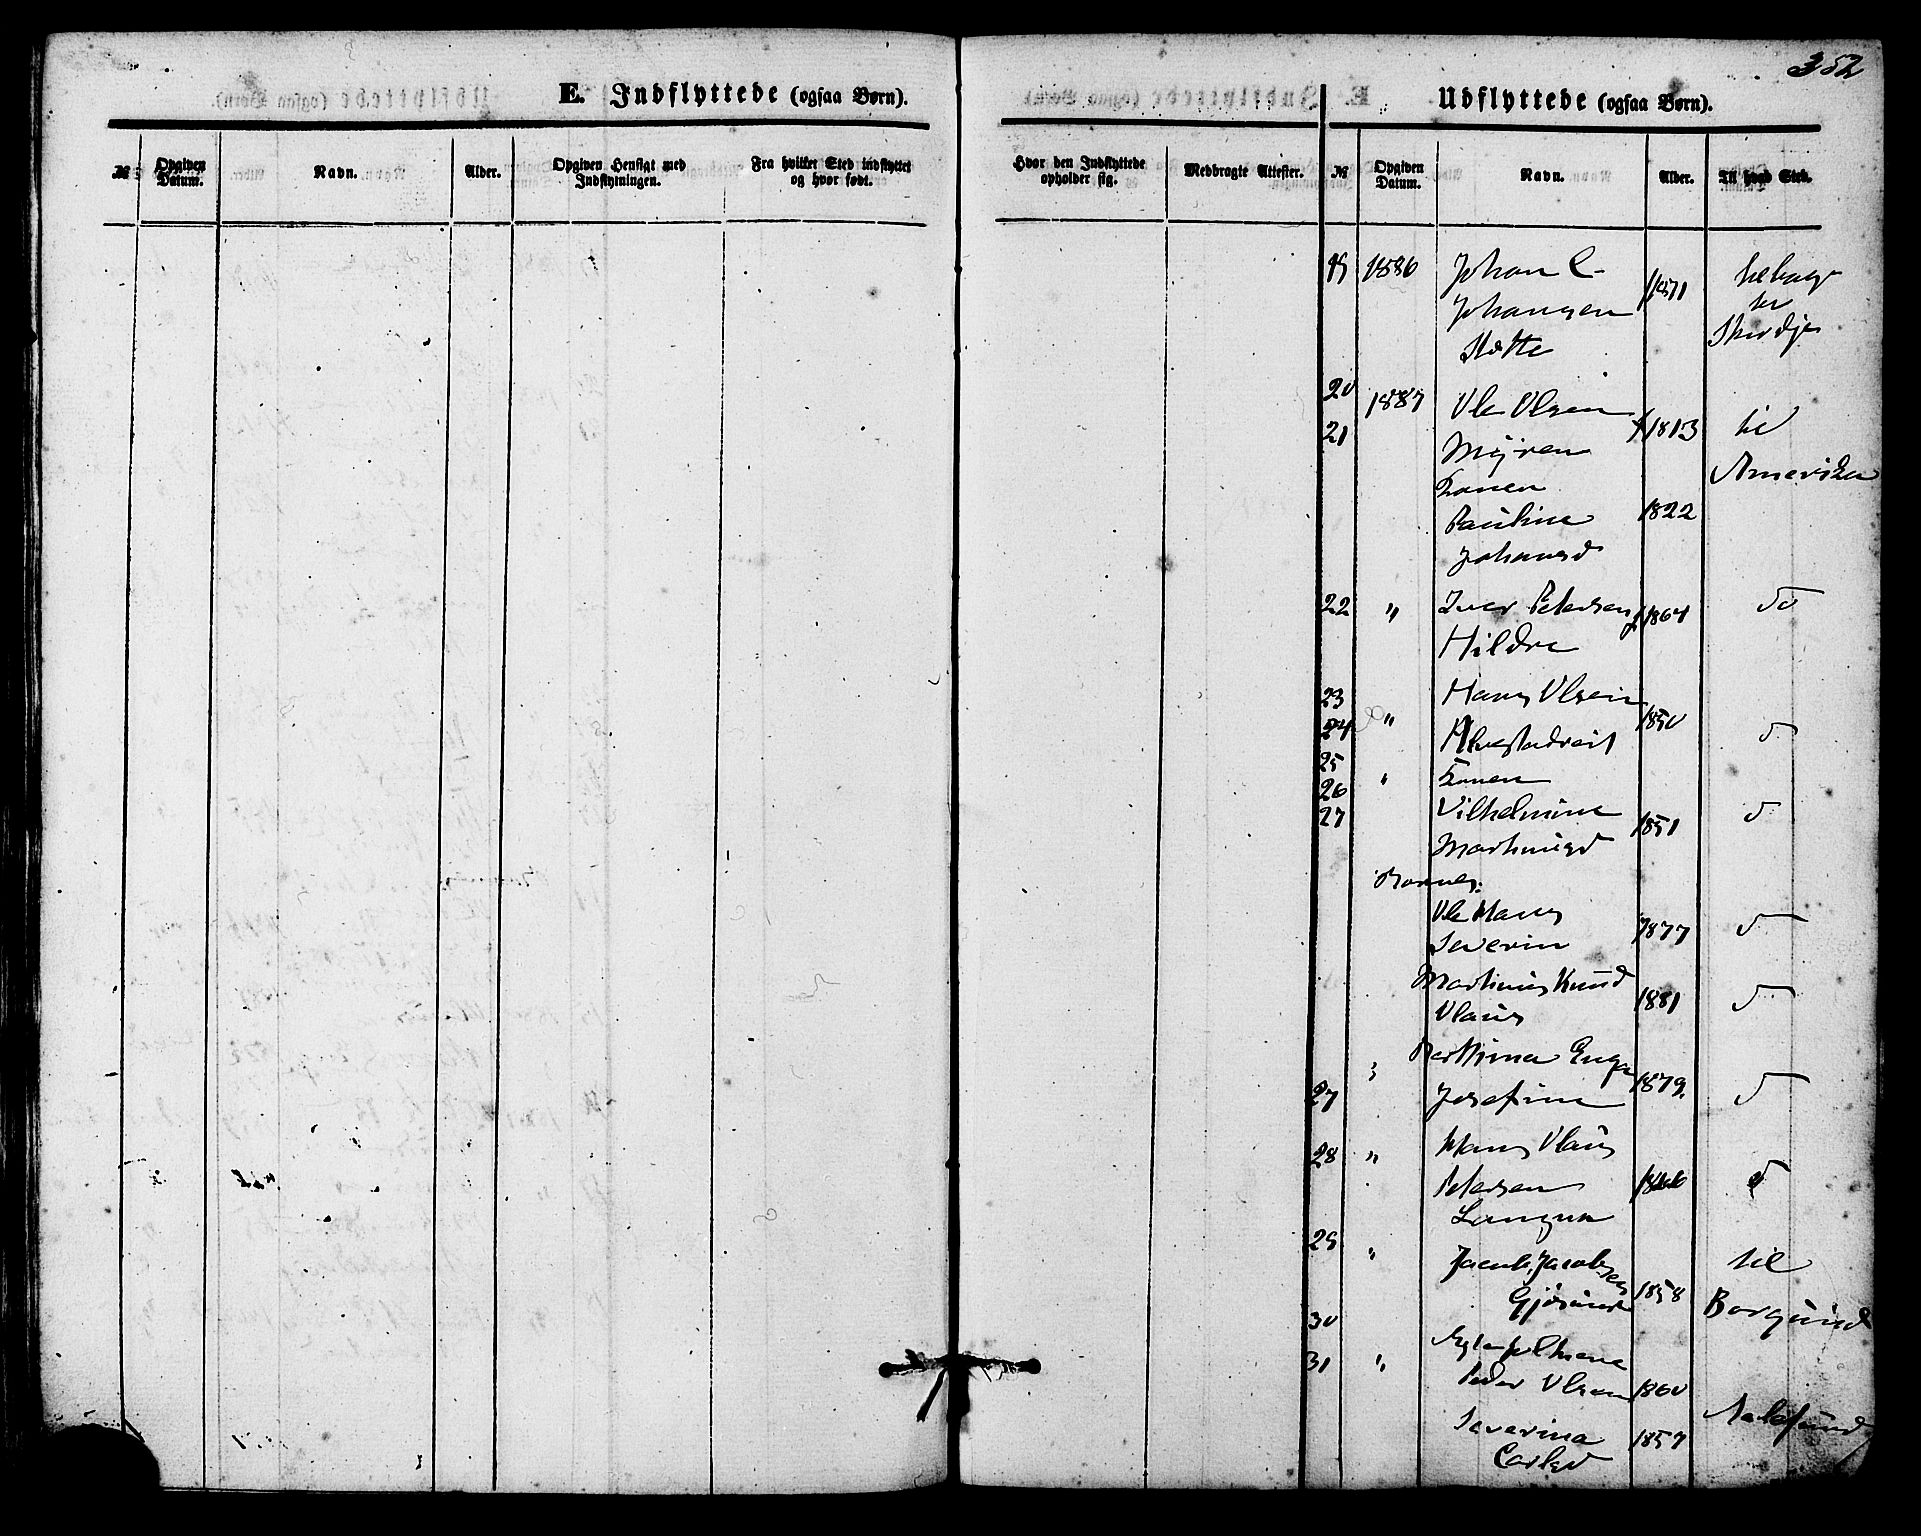 352
E. Indflyttede (ogsaa Børn).
Udflyttede (ogsaa Børn).
№ Opgiven Datum. Navn. Alder. Opgiven Hensigt med Indflytningen. Fra hvilket Sted indflyttet og hvor født.
Hvor den Indflyttede opholder sig. Medbragte Attester. № Opgiven Datum. Navn. Alder. Til hvad Sted.
19 1886 Johan C
Johansen 1871
20 1887 Ole Olsen
21 Myren 1813 til
Konen Amerika
Pauline 1822
Johansd
22 " Iver Petersen 1864 do
Hildre
23 Hans Olsen
24 " 1850 d
25 " Konen
26 Vilhelmine
27 Martinusd 1851 d
Børnene:
Ole Hans
Severin 1877 d
Martinus Knud
Olaus 1881 d
27 Josefine 1879. d
28 " Hans Olaus
Petersen 1866 d
29 " Jacob Jacobsen til
1858 Borgund
30
31 " Peder Olsen 1860
Severina 1857 Aalesund
Carlsd